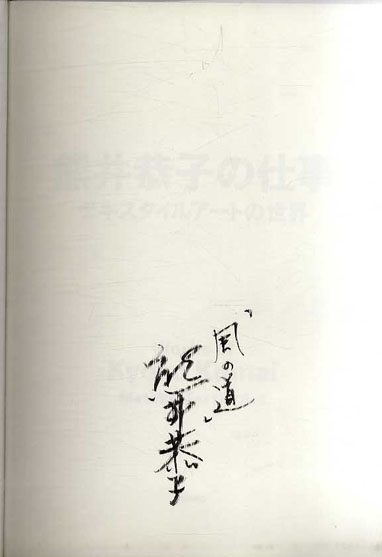 熊井恭子の仕事
テキスタイルアートの世界
「風の道」
熊井恭子